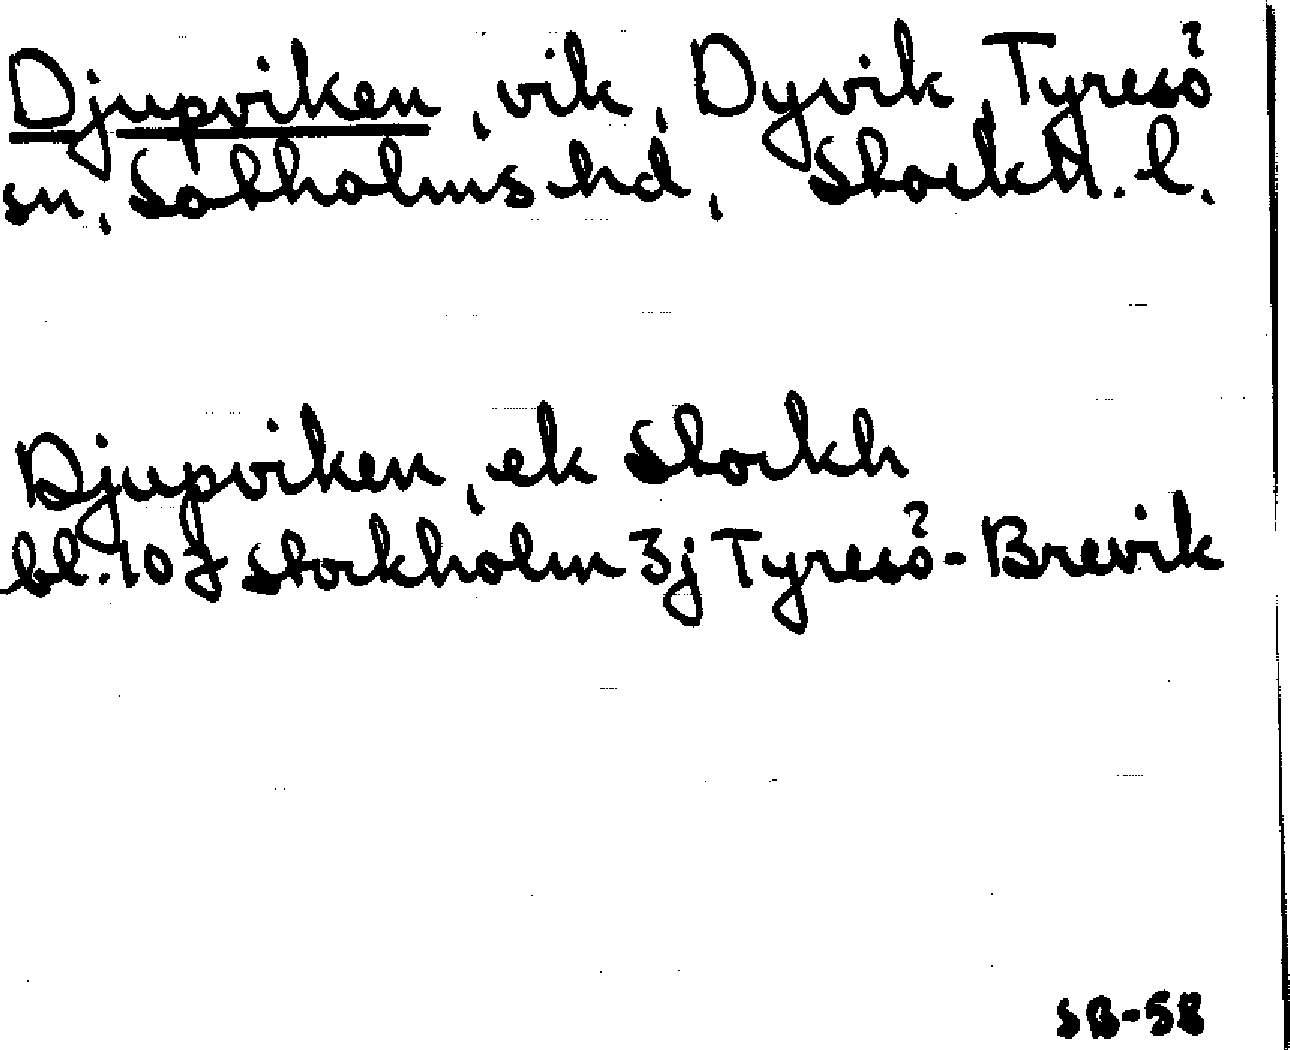 Djupviken, vik, Dyvik, Tyresö
sn, Sotholms hd, Stockh. l.
Djupviken, ek Stockh
bl. 10J Stockholm 3j Tyresö-Brevik
SB-58